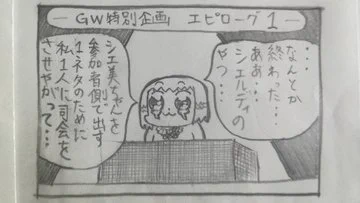 －GW特別企画　エピローグ1－
・・・
なんとか
終わった・・・
ああ・・・
シエルディの
やつ・・・
シエ美ちゃんを
参加者側で出す
1ネタのために
私1人に司会を
させやがって・・・